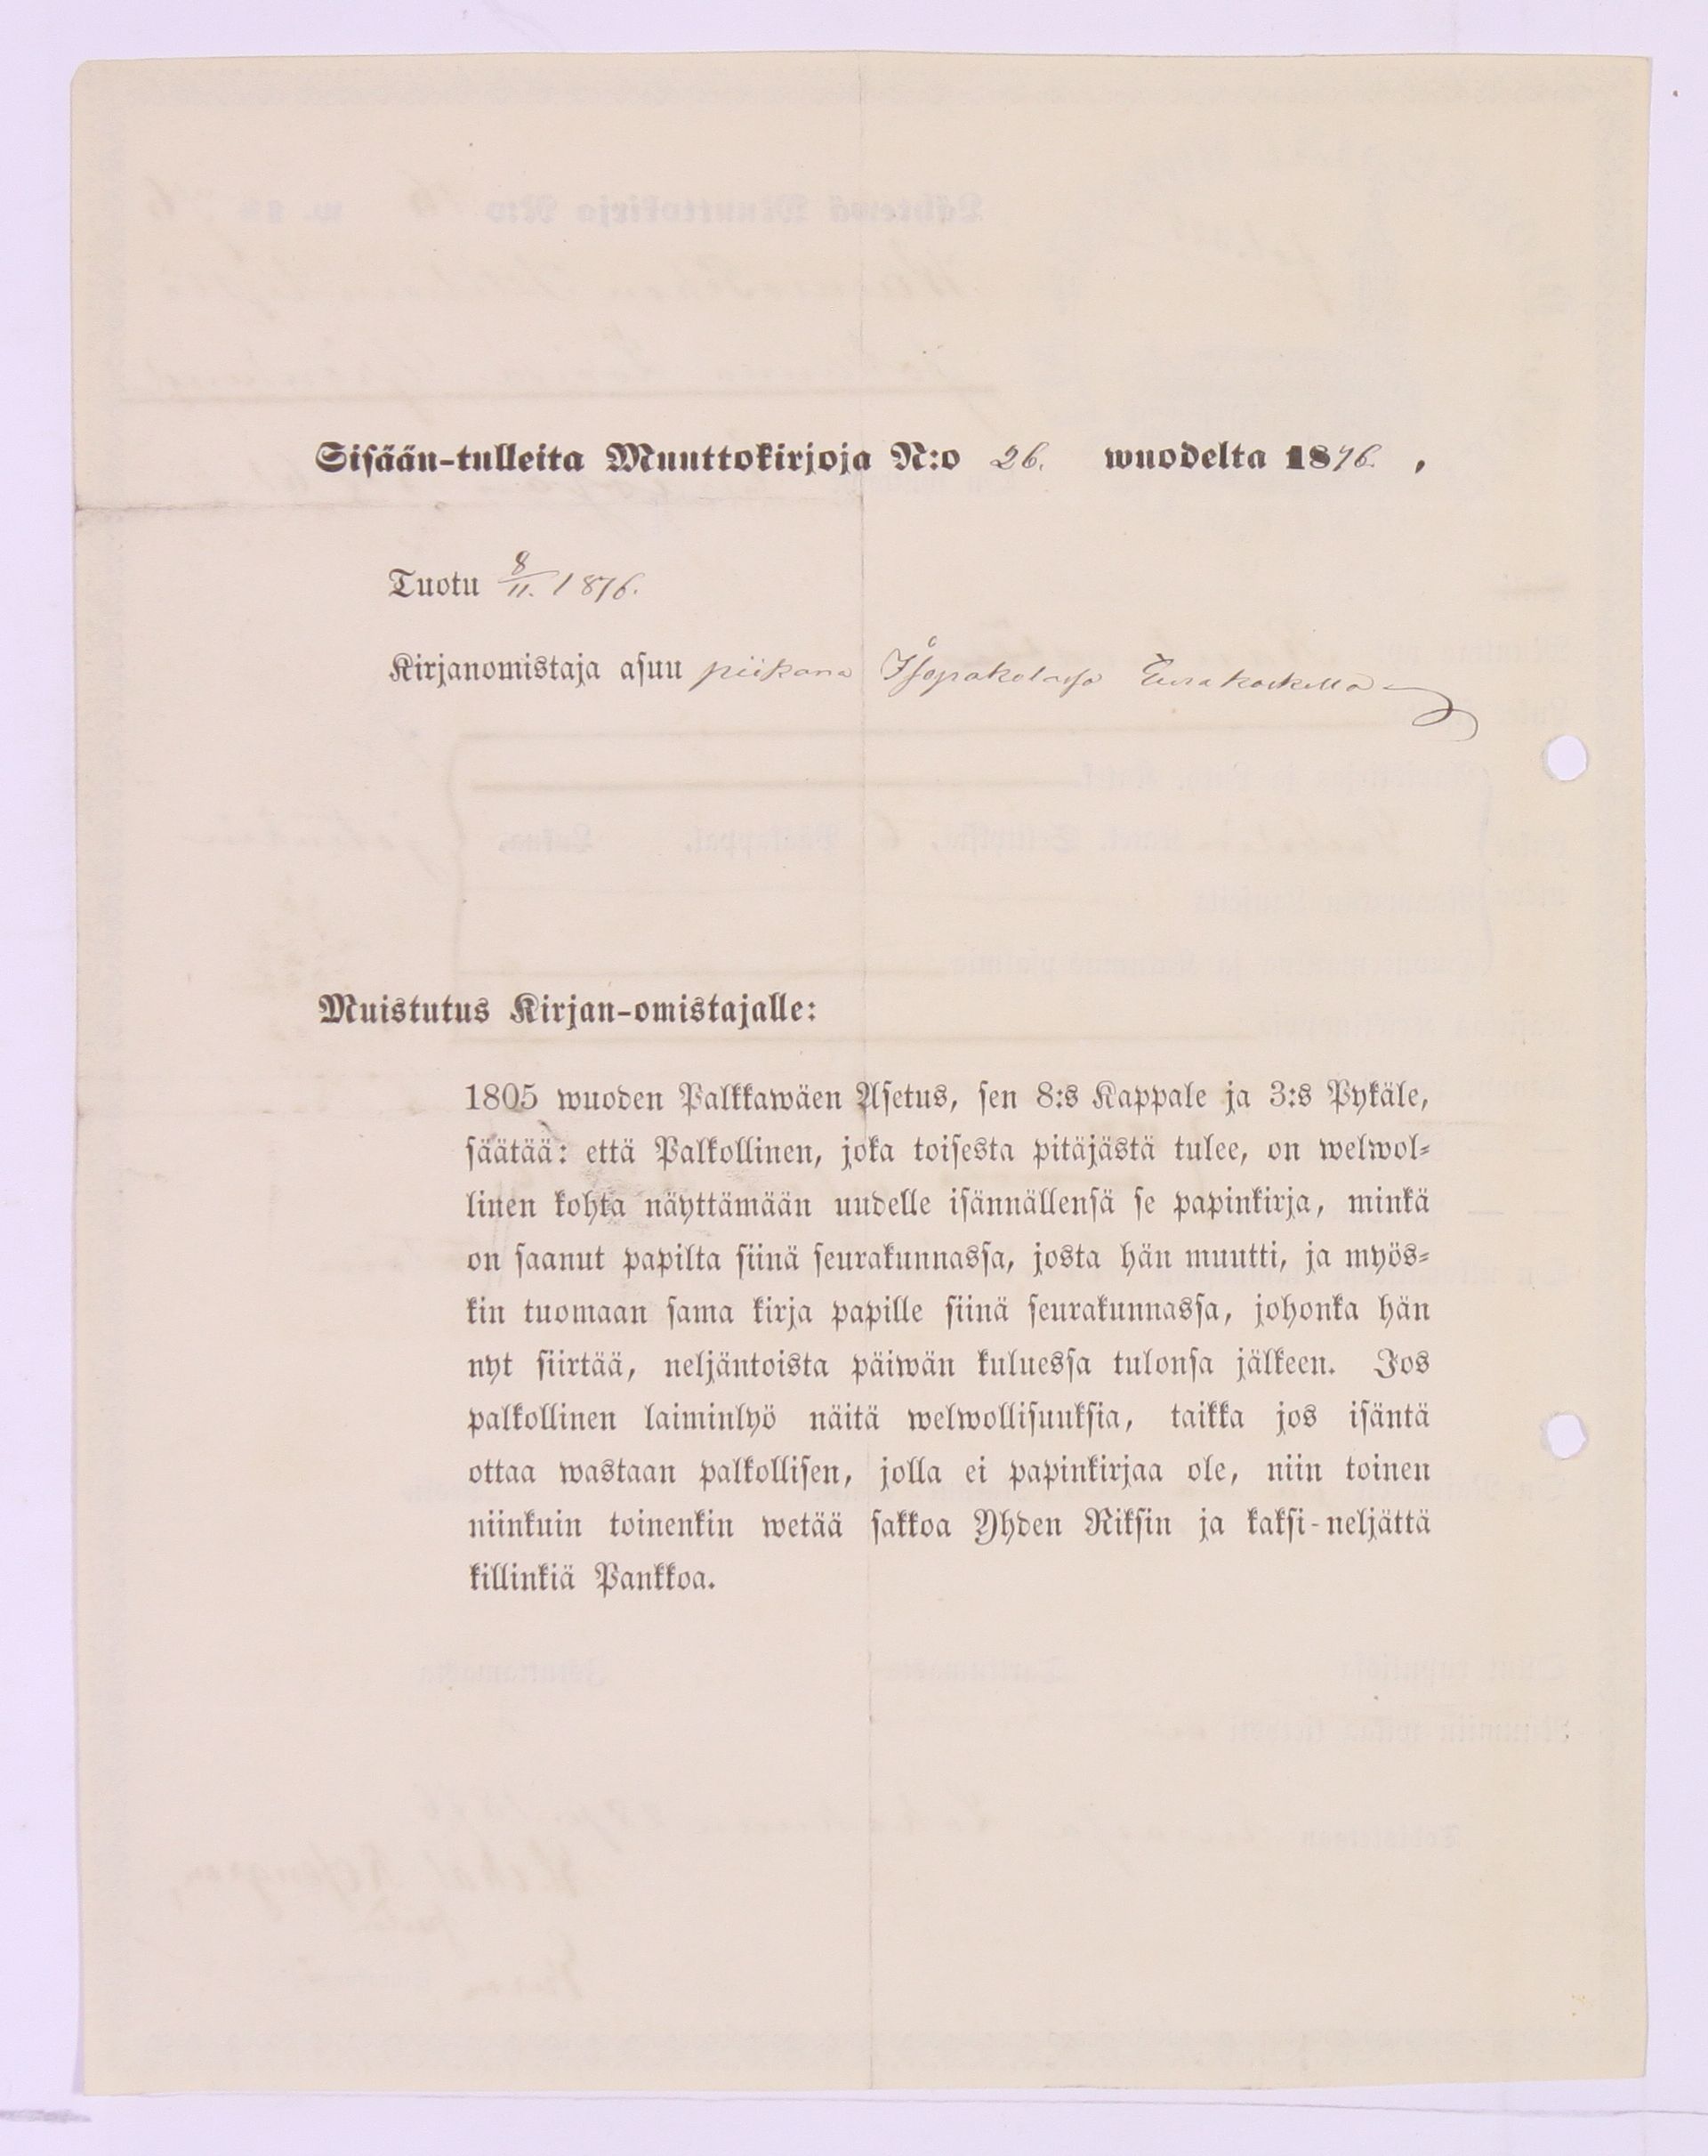 Sisään-tulleita Muuttokirjoja N:o 26. wuodelta 1876. ,
Tuotu 8/11. 1876.
Kirjanomistaja asuu piikana Isopakolassa Eurakoskella
Muistutus Kirjan-omistajalle:
1805 wuoden Palkkawäen Asetus, sen 8:s Kappale ja 3:s Pykäle,
säätää: että Palkollinen, joka toisesta pitäjästä tulee, on welwol-
linen kohta näyttämään uudelle isännällensä se papinkirja, minkä
on saanut papilta siinä seurakunnassa, josta hän muutti, ja myös-
kin tuomaan sama kirja papille siinä seurakunnassa, johonka hän
nyt siirtää, neljäntoista päiwän kuluessa tulonsa jälkeen. Jos
palkollinen laiminlyö näitä welwollisuuksia, taikka jos isäntä
ottaa wastaan palkollisen, jolla ei papinkirjaa ole, niin toinen
niinkuin toinenkin wetää sakkoa Yhden Riksin ja kaksi-neljättä
killinkiä Pankkoa.